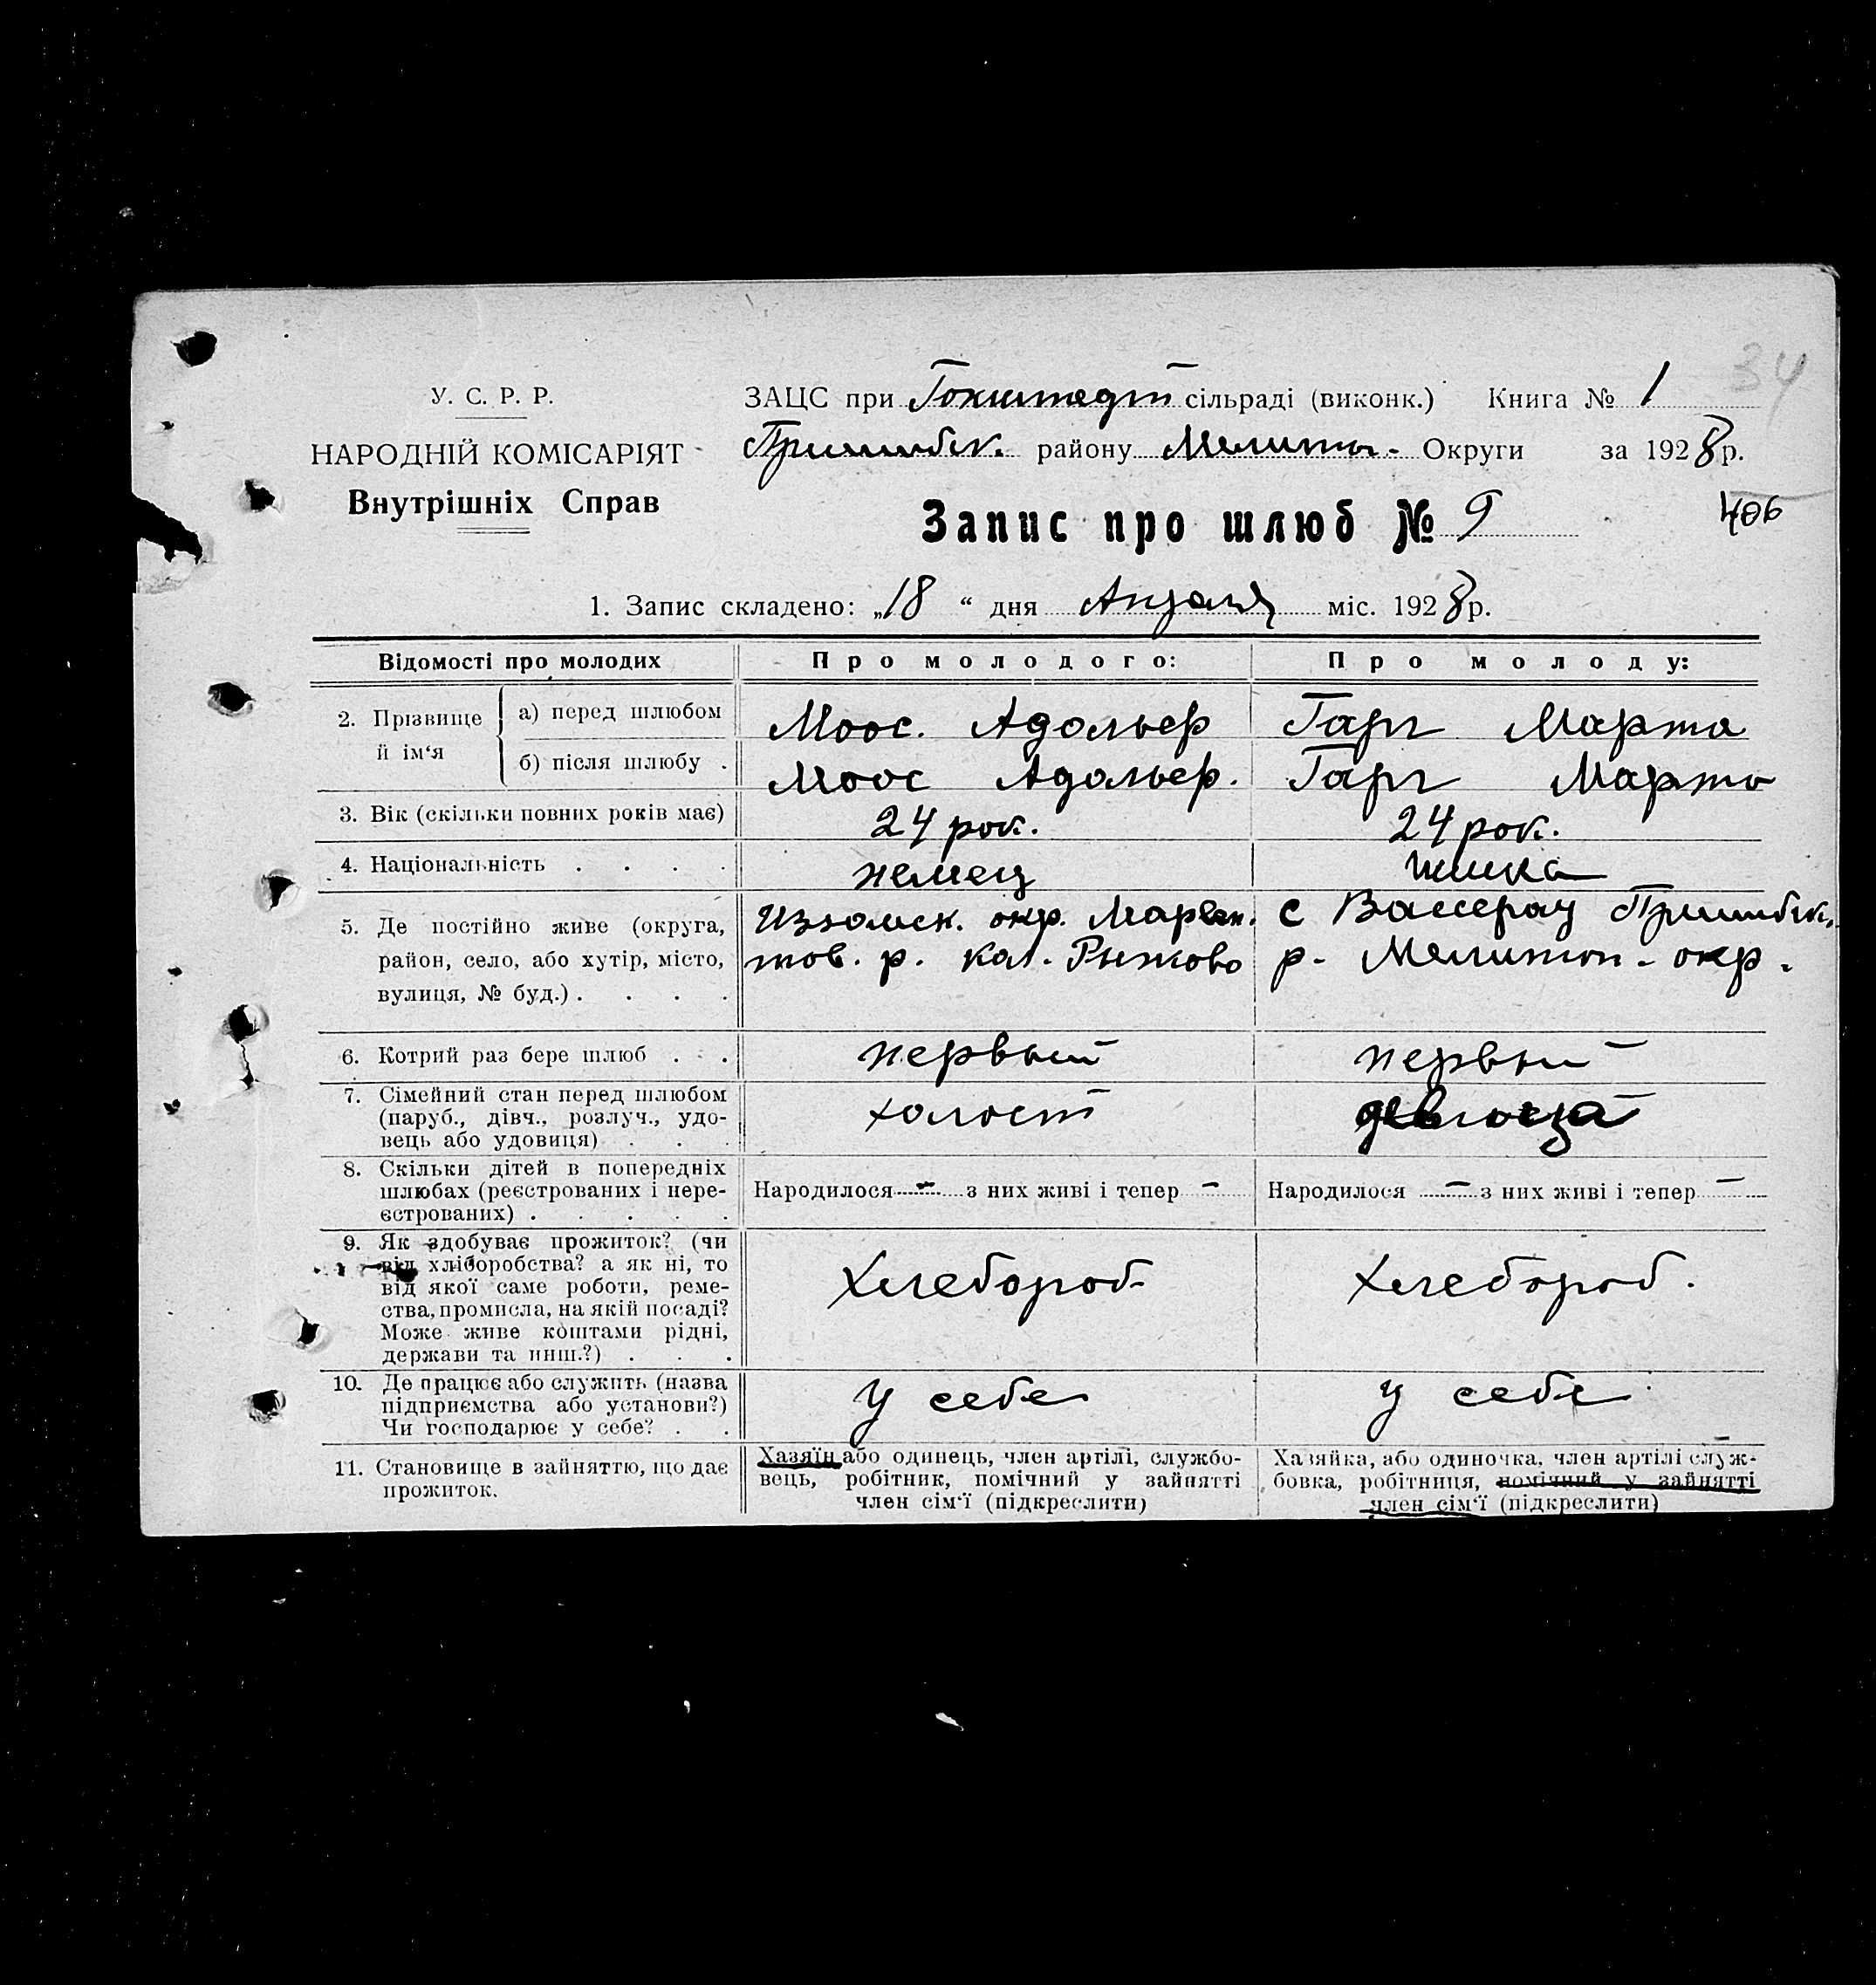 34
У. С. Р. Р.
НАРОДНІЙ КОМІСАРІЯТ
Внутрішніх Справ
ЗАЦС при Гохштедт сільраді (виконк.) Книга № 1
Пришибск. району Мелитоп. Округи за 1928 р.
Запис про шлюб № 9
406
1. Запис складено: „18“ дня Апреля міс. 1928 р.
Відомості про молодих Про молодого: Про молоду:
2. Прізвище й ім‘я а) перед шлюбом Моос. Адольф Гарг Марта
б) після шлюбу . Моос Адольф. Гарг Марта
3. Вік (скільки повних років має) 24 рок. 24 рок.
4. Національність . . . . немец немка
5. Де постійно живе (округа, Изюмск. окр. с Вассерау Пришибск.
район, село, або хутір, місто, тов. р. кол. Рыжово р. Мелитоп. окр.
вулиця, № буд.) . . . .
6. Котрий раз бере шлюб . . . первый первый
7. Сімейний стан перед шлюбом
(паруб., дівч., розлуч., удо- холост
вець або удовиця) . . .
8. Скільки дітей в попередніх
шлюбах (реєстрованих і нере- Народилося — з них живі і тепер — Народилося — з них живі і тепер —
єстрованих) . . . . .
9. Як здобуває прожиток? (чи
від хліборобства? а як ні, то
від якої саме роботи, реме- Хлебороб Хлебороб.
ства, промисла, на якій посаді?
Може живе коштами рідні,
держави та инш.?) . . .
10. Де працює або служить (назва
підприємства або установи?) У себе У себе
Чи господарює у себе? . .
11. Становище в зайняттю, що дає Хазяїн або одинець, член артілі, службо- Хазяйка, або одиночка, член артілі служ-
прожиток. вець, робітник, помічний у зайнятті бовка, робітниця, помічний у зайнятті
член сім‘ї (підкреслити) член сім‘ї (підкреслити)